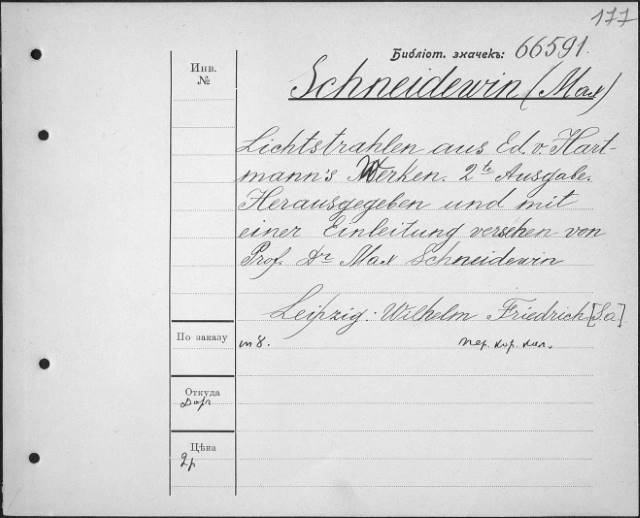 177
Библіот. значекъ: 66591.
Инв.
№
Schneidewin (Max)
Lichtstrahlen aus Ed. v. Hart-
mann's Werken. 2te Ausgabe.
Herausgegeben und mit
einer Einleitung versehen von
Prof. Dr Max Schneidewin
Leipzig. Wilhelm Friedrich [S.a]
По заказу
m 8.
пер. кор. кол.
Откуда
Дар
Цѣна
2р